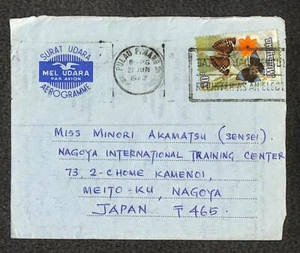 SURAT UDARA
MEL UDARA
PAR AVION
AEROGRAMME
PULAU PINANG
JUN
MALAYSIA
REGISTER AS AN ELECT
MISS MINORI AKAMATSU (SENSEI).
NAGOYA INTERNATIONAL TRAINING CENTER
73, 2-CHOME KAMENOI,
MEITO-KU, NAGOYA
JAPAN 〒465.